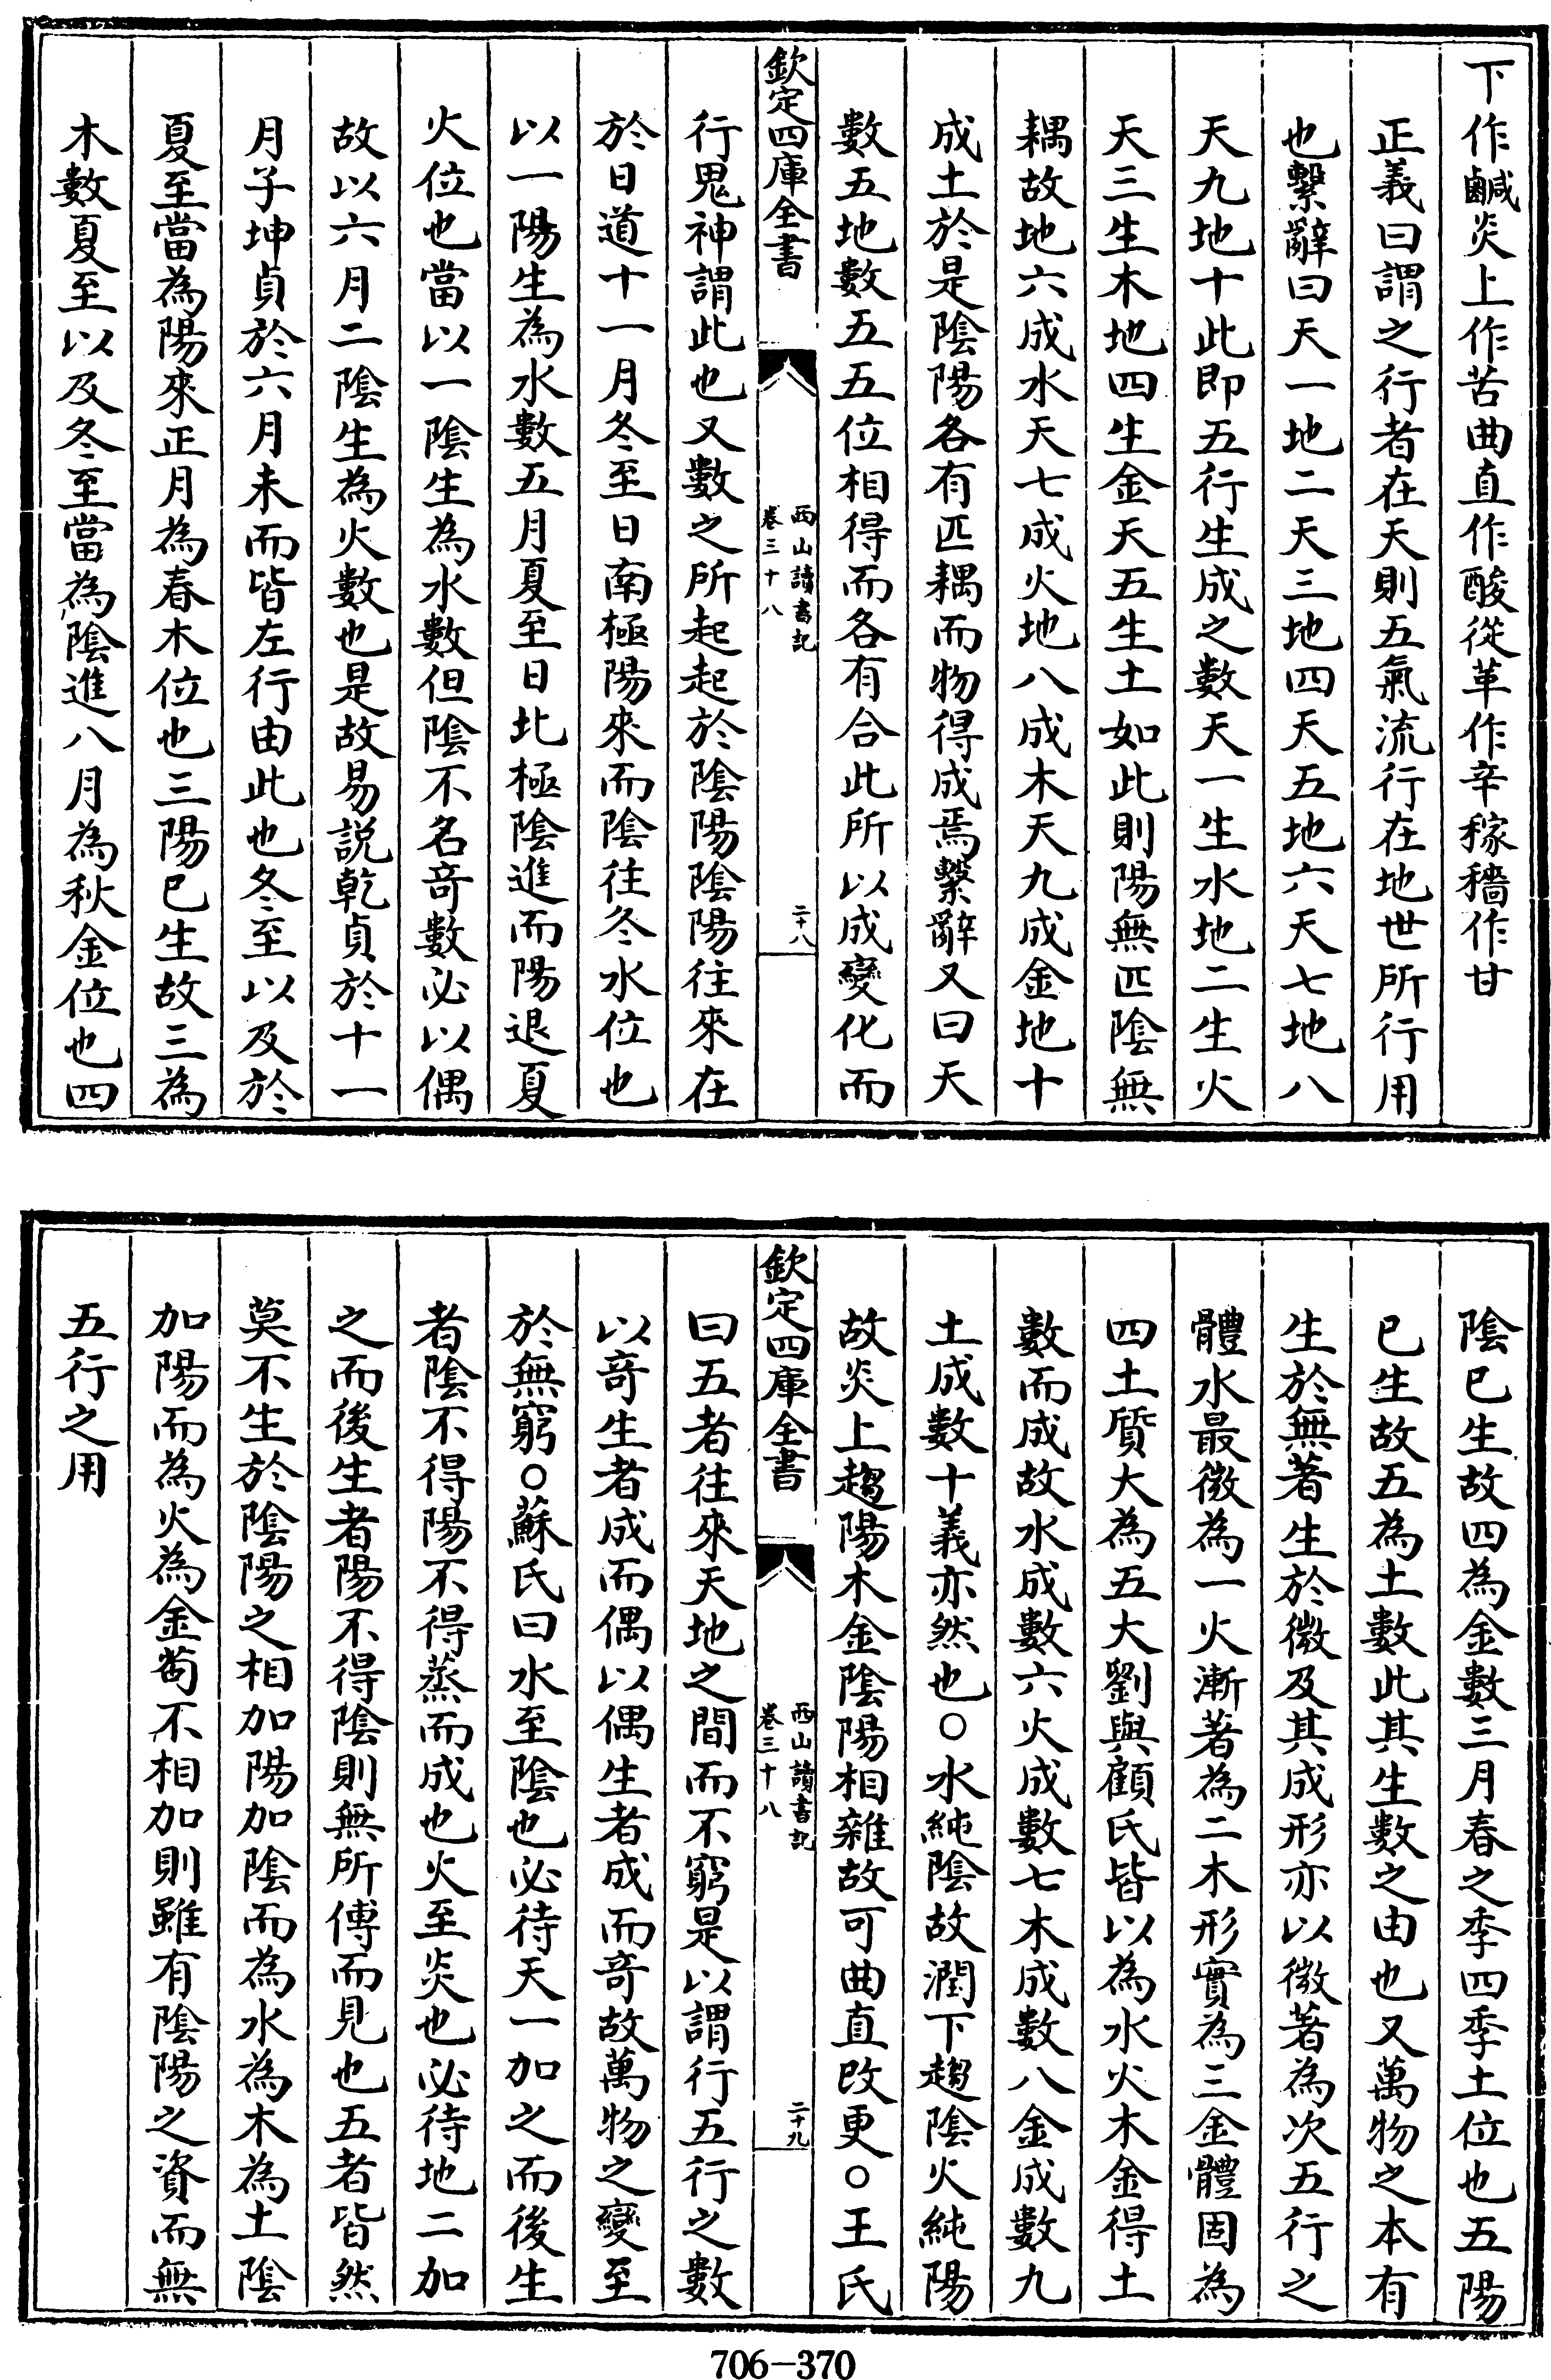 下作鹹炎上作苦曲直作酸從革作辛稼穡作甘
正義曰謂之行者在天則五氣流行在地世所行用
也繫辭曰天一地二天三地四天五地六天七地八
天九地十此即五行生成之數天一生水地二生火
天三生木地四生金天五生土如此則陽無匹陰無
耦故地六成水天七成火地八成木天九成金地十
成土於是陰陽各有匹耦而物得成焉繫辭又曰天
數五地數五五位相得而各有合此所以成變化而
欽定四庫全書
西山讀書記
卷三十八
二十八
行鬼神謂此也又數之所起起於陰陽陰陽往來在
於日道十一月冬至日南極陽來而陰往冬水位也
以一陽生為水數五月夏至日北極陰進而陽退夏
火位也當以一陰生為水數但陰不名竒數必以偶
故以六月二陰生為火數也是故易説乾貞於十一
月子坤貞於六月未而皆左行由此也冬至以及於
夏至當為陽來正月為春木位也三陽已生故三為
木數夏至以及冬至當為陰進八月為秋金位也四
陰已生故四為金數三月春之季四季土位也五陽
已生故五為土數此其生數之由也又萬物之本有
生於無著生於微及其成形亦以微著為次五行之
體水最微為一火漸著為二木形實為三金體固為
四土質大為五大劉與顧氏皆以為水火木金得土
數而成故水成數六火成數七木成數八金成數九
土成數十義亦然也○水純陰故潤下趨陰火純陽
故炎上趨陽木金陰陽相雜故可曲直改更○王氏
欽定四庫全書
西山讀書記
卷三十八
二十九
曰五者往來天地之間而不窮是以謂行五行之數
以竒生者成而偶以偶生者成而竒故萬物之變至
於無窮○蘇氏曰水至陰也必待天一加之而後生
者陰不得陽不得蒸而成也火至炎也必待地二加
之而後生者陽不得陰則無所傅而見也五者皆然
莫不生於陰陽之相加陽加陰而為水為木為土陰
加陽而為火為金茍不相加則雖有陰陽之資而無
五行之用
706-370